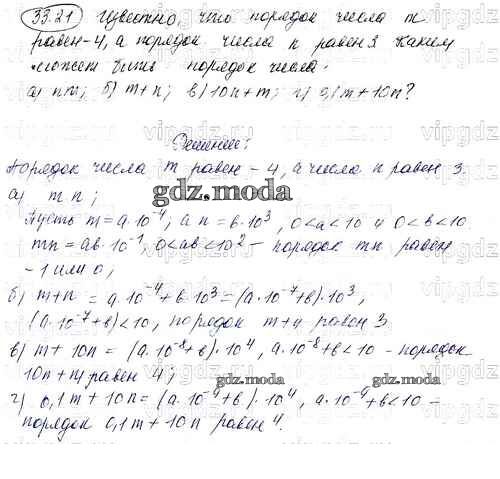 33.21 Известно, что порядок числа m
равен -4, а порядок числа n равен 3. Каким
может быть порядок числа:
а) nm; б) m+n; в) 10n+m; г) 0,1m+10n?
Решение:
Порядок числа m равен -4, а числа n равен 3.
а) m n;
gdz.moda
Пусть m = a·10⁻⁴; а n = в·10³, 0<a<10 и 0<в<10.
mn = aв·10⁻¹, 0<aв<10² – порядок mn равен
-1 или 0;
б) m+n = a·10⁻⁴+в·10³=(a·10⁻⁷+в)·10³,
(a·10⁻⁷+в)<10, порядок m+n равен 3.
в) m+10n = (a·10⁻⁸+в)·10⁴, a·10⁻⁸+в<10 – порядок
10n+m равен 4;
gdz.moda
г) 0,1m+10n=(a·10⁻⁹+в)·10⁴, a·10⁻⁹+в<10 –
порядок 0,1m+10n равен 4.
gdz.moda